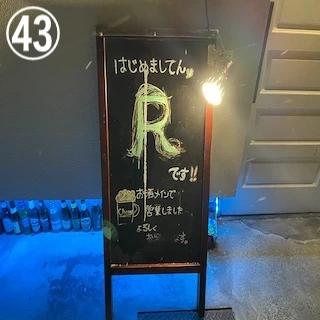 43
はじめましてん
R
です!!
お酒メインで
営業しました
よろしく